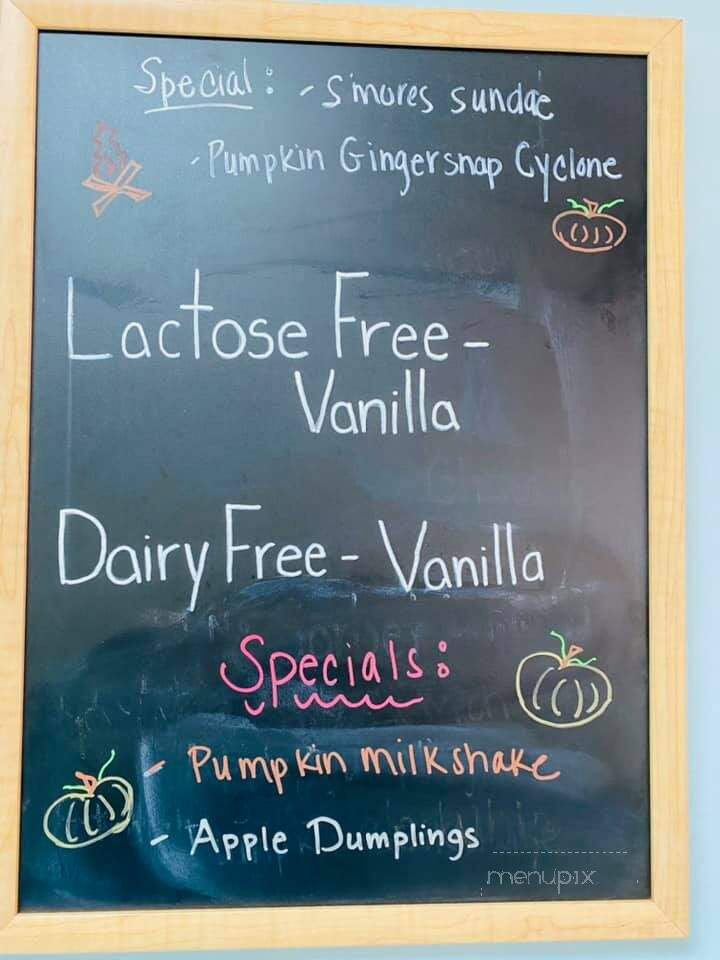 Special: - S'mores sundae
- Pumpkin Gingersnap Cyclone
Lactose Free -
Vanilla
Dairy Free - Vanilla
Specials:
- Pumpkin milkshake
- Apple Dumplings
menupix